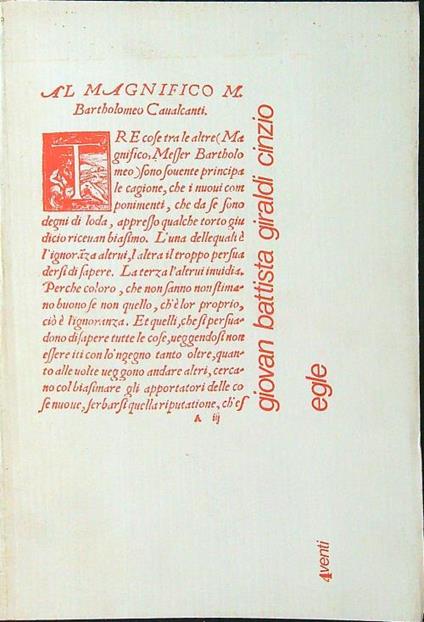 AL MAGNIFICO M.
Bartholomeo Caualcanti.
TRE cose tra le altre (Ma
gnifico, Messer Bartholo
meo) sono souente principa
le cagione, che i nuoui com
ponimenti, che da se sono
degni di loda, appresso qualche torto giu
dicio riceuan biasimo. L'una delle quali è
l'ignorãza altrui, l'altra il troppo persua
dersi di sapere. La terza l'altrui inuidia.
Perche coloro, che non sanno non stima
no buono se non quello, ch'è lor proprio,
ciò è l'ignoranza. Et quelli, che si persua
dono di sapere tutte le cose, ueggendosi non
essere iti con lo'ngegno tanto oltre, quan
to alle uolte ueggono andare altri, cerca
no col biasimare gli apportatori delle co
se nuoue, serbarsi quella riputatione, ch'es
A iij
giovan battista giraldi cinzio
egle
4venti